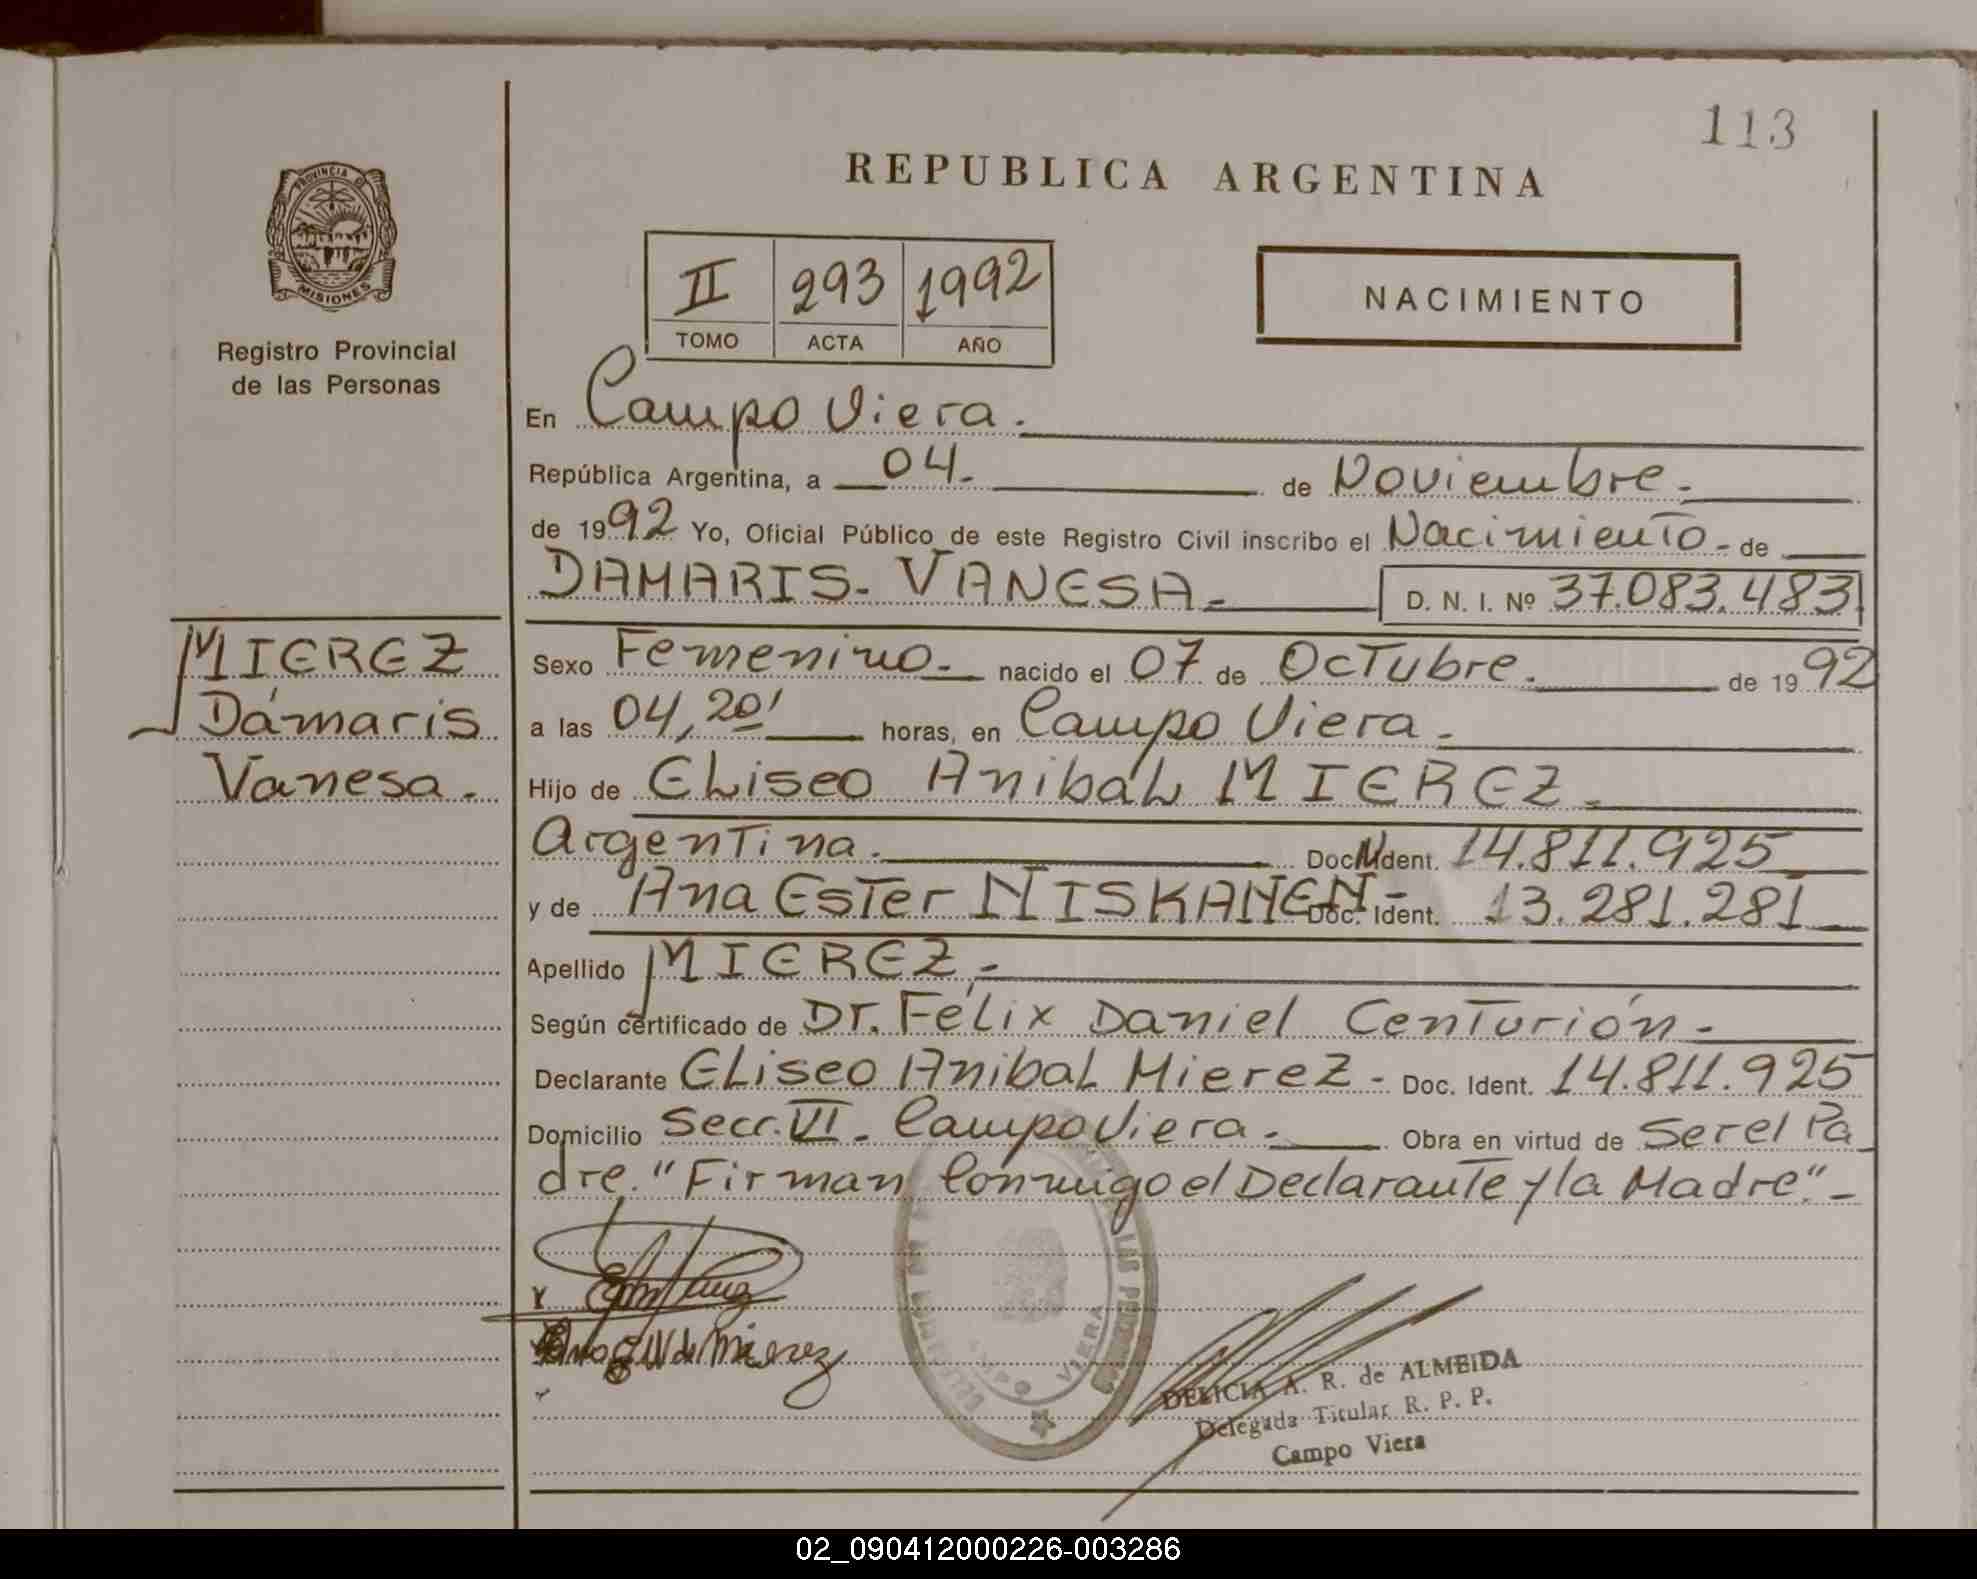 113
REPUBLICA ARGENTINA
PROVINCIA DE
MISIONES
Registro Provincial
de las Personas
II 293 1992
TOMO ACTA AÑO
NACIMIENTO
En Campo Viera.
República Argentina, a 04. de Noviembre.
de 1992 Yo, Oficial Público de este Registro Civil inscribo el Nacimiento - de
DAMARIS - VANESA - D. N. I. Nº 37.083.483
MIEREZ
Dámaris
Vanesa.
Sexo Femenino. nacido el 07 de Octubre. de 1992
a las 04,20' horas, en Campo Viera.
Hijo de ELiseo AnibaL MIEREZ.
Argentina. Doc. Ident. 14.811.925
y de Ana Ester NISKANEN - Doc. Ident. 13.281.281
Apellido MIEREZ.-
Según certificado de Dr. Félix Daniel Centurión -
Declarante ELiseo AnibaL MiereZ - Doc. Ident. 14.811.925
Domicilio Secc. VI. Campo Viera. Obra en virtud de Ser el Pa
dre. "Firman Conmigo el Declarante y la Madre".-
VIERA
DELICIA A. R. de ALMEIDA
Delegada Titular R. P. P.
Campo Viera
02_090412000226-003286